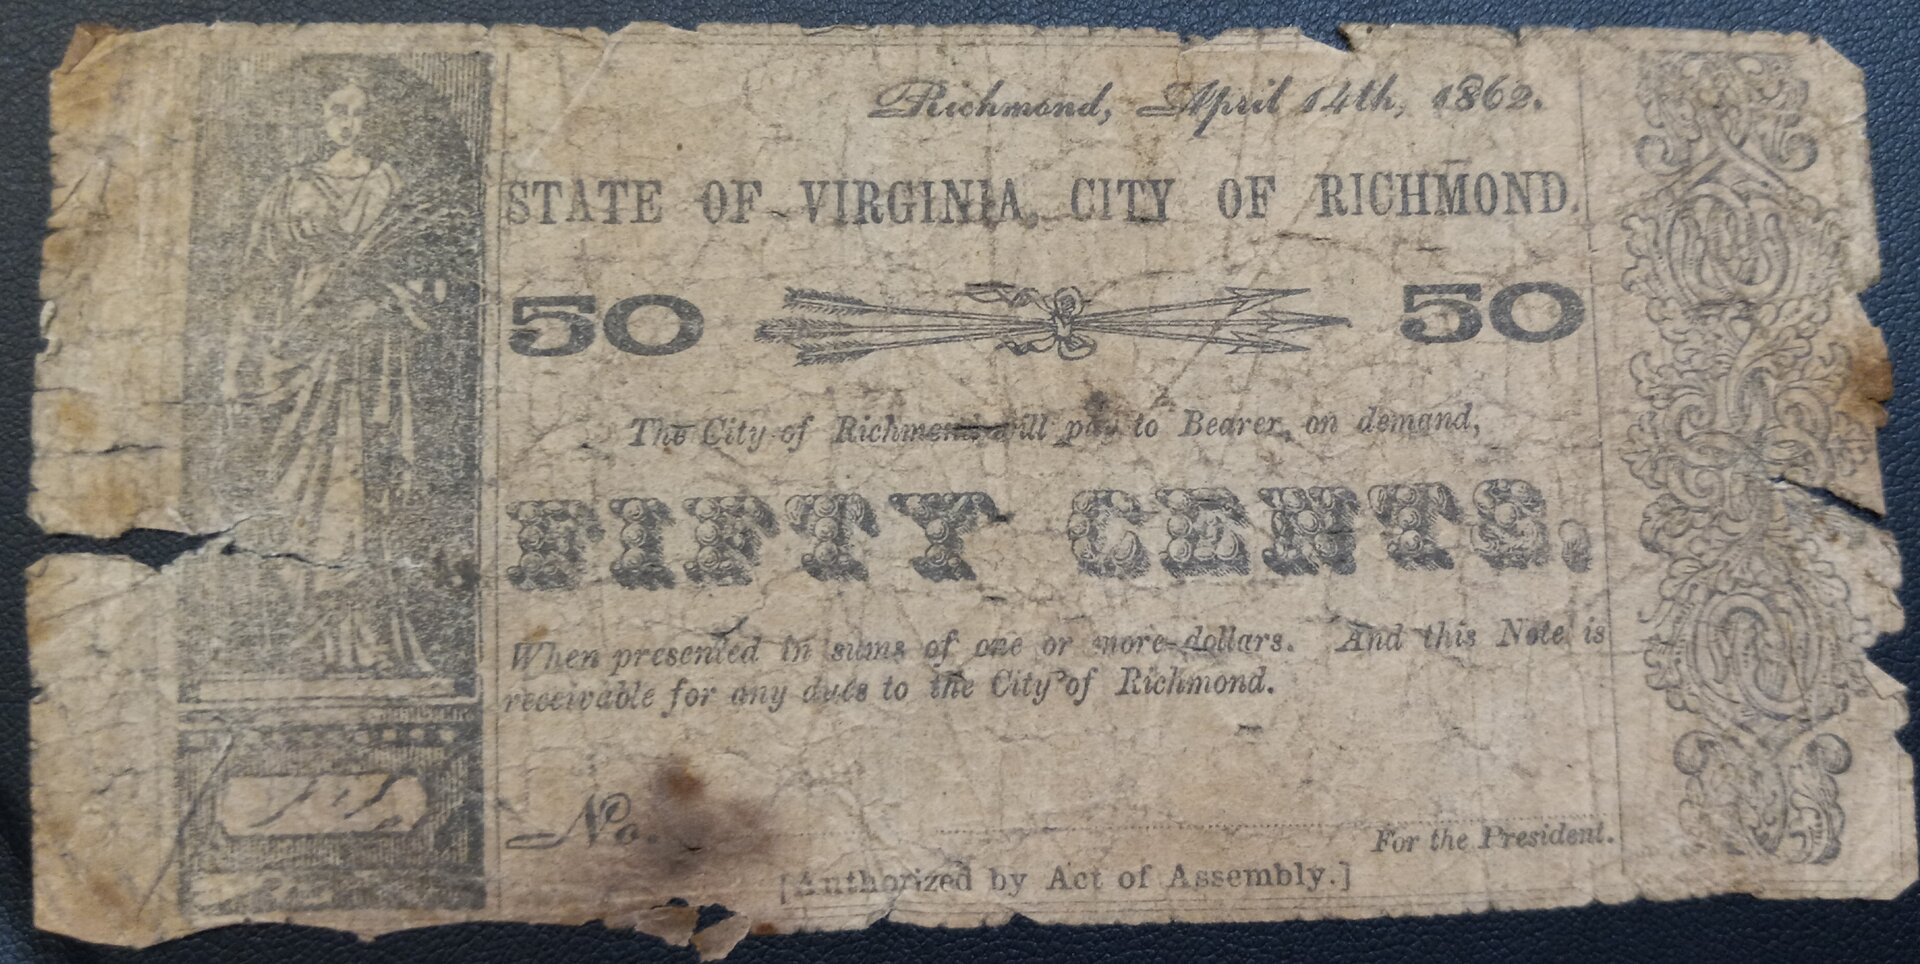 Richmond, April 14th, 1862.
STATE OF VIRGINIA, CITY OF RICHMOND.
50 50
The City of Richmond will pay to Bearer, on demand,
FIFTY CENTS.
When presented in sums of one or more dollars. And this Note is
receivable for any dues to the City of Richmond.
No.
For the President.
[Authorized by Act of Assembly.]